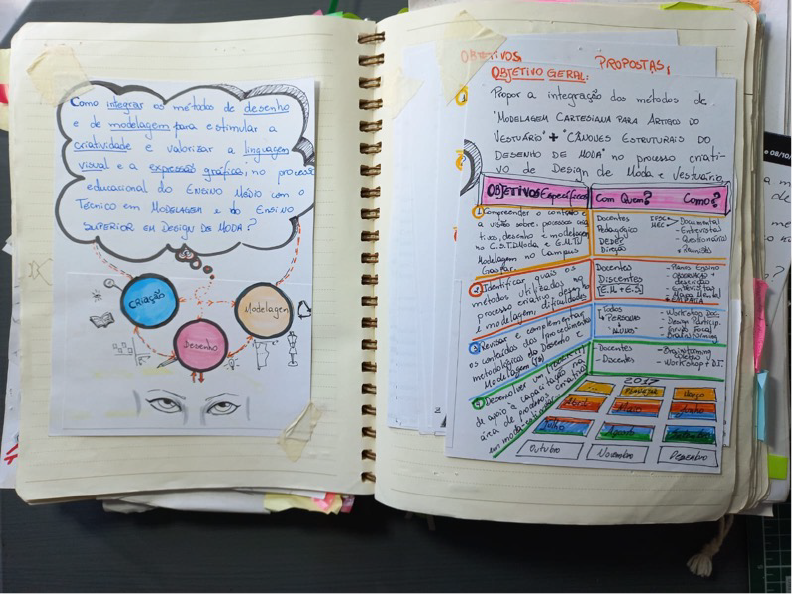 Como integrar os métodos de desenho
e de modelagem para estimular a
criatividade e valorizar a linguagem
visual e a expressão gráfica, no processo
educacional do Ensino Médio com o
Técnico em Modelagem e do Ensino
Superior em Design de Moda?
Criação
Modelagem
Desenho
OBJETIVOS
PROPOSTAS:
OBJETIVO GERAL:
Propor a integração dos métodos de
"MODELAGEM CARTESIANA PARA ARTIGOS DO
VESTUÁRIO" + "CÂNONES ESTRUTURAIS DO
DESENHO DE MODA" no processo criati-
vo de Design de Moda e Vestuário.
OBJETIVOS Específicos
Com Quem?
Como?
1 Compreender o contexto e
a visão sobre: processos cria
tivos, desenho e modelagem
no C.S.T.D.Moda e E.M.T.
Modelagem no Campus
Gaspar.
Docentes
Pedagógico
DEPE
Direção
IFSC
MEC
Documental
- Entrevistas
- Questionários
2 Identificar quais os
métodos utilizados no
processo criativo: desenho
e modelagem: dificuldades
Docentes
Discentes
[E.M. + E.S.]
- Planos Ensino
- Observação +
descrição
- Entrevistas
- Mapa Mental
- EMPATIA
3 Revisar e complementar
os conteúdos dos procedimentos
metodológicos do Desenho e
Modelagem
Todos
"PERSONAS"
- Workshop
- Design Particip.
- Grupo Focal
- Brainstorming
4 Desenvolver um
de apoio à capacitação na
área de processos criativos
em moda
- Docentes
- Discentes
- Brainstorming
- Workshop + D.T.
2017
Fevereiro
Março
Abril
Maio
Junho
Julho
Agosto
Setembro
Outubro
Novembro
Dezembro